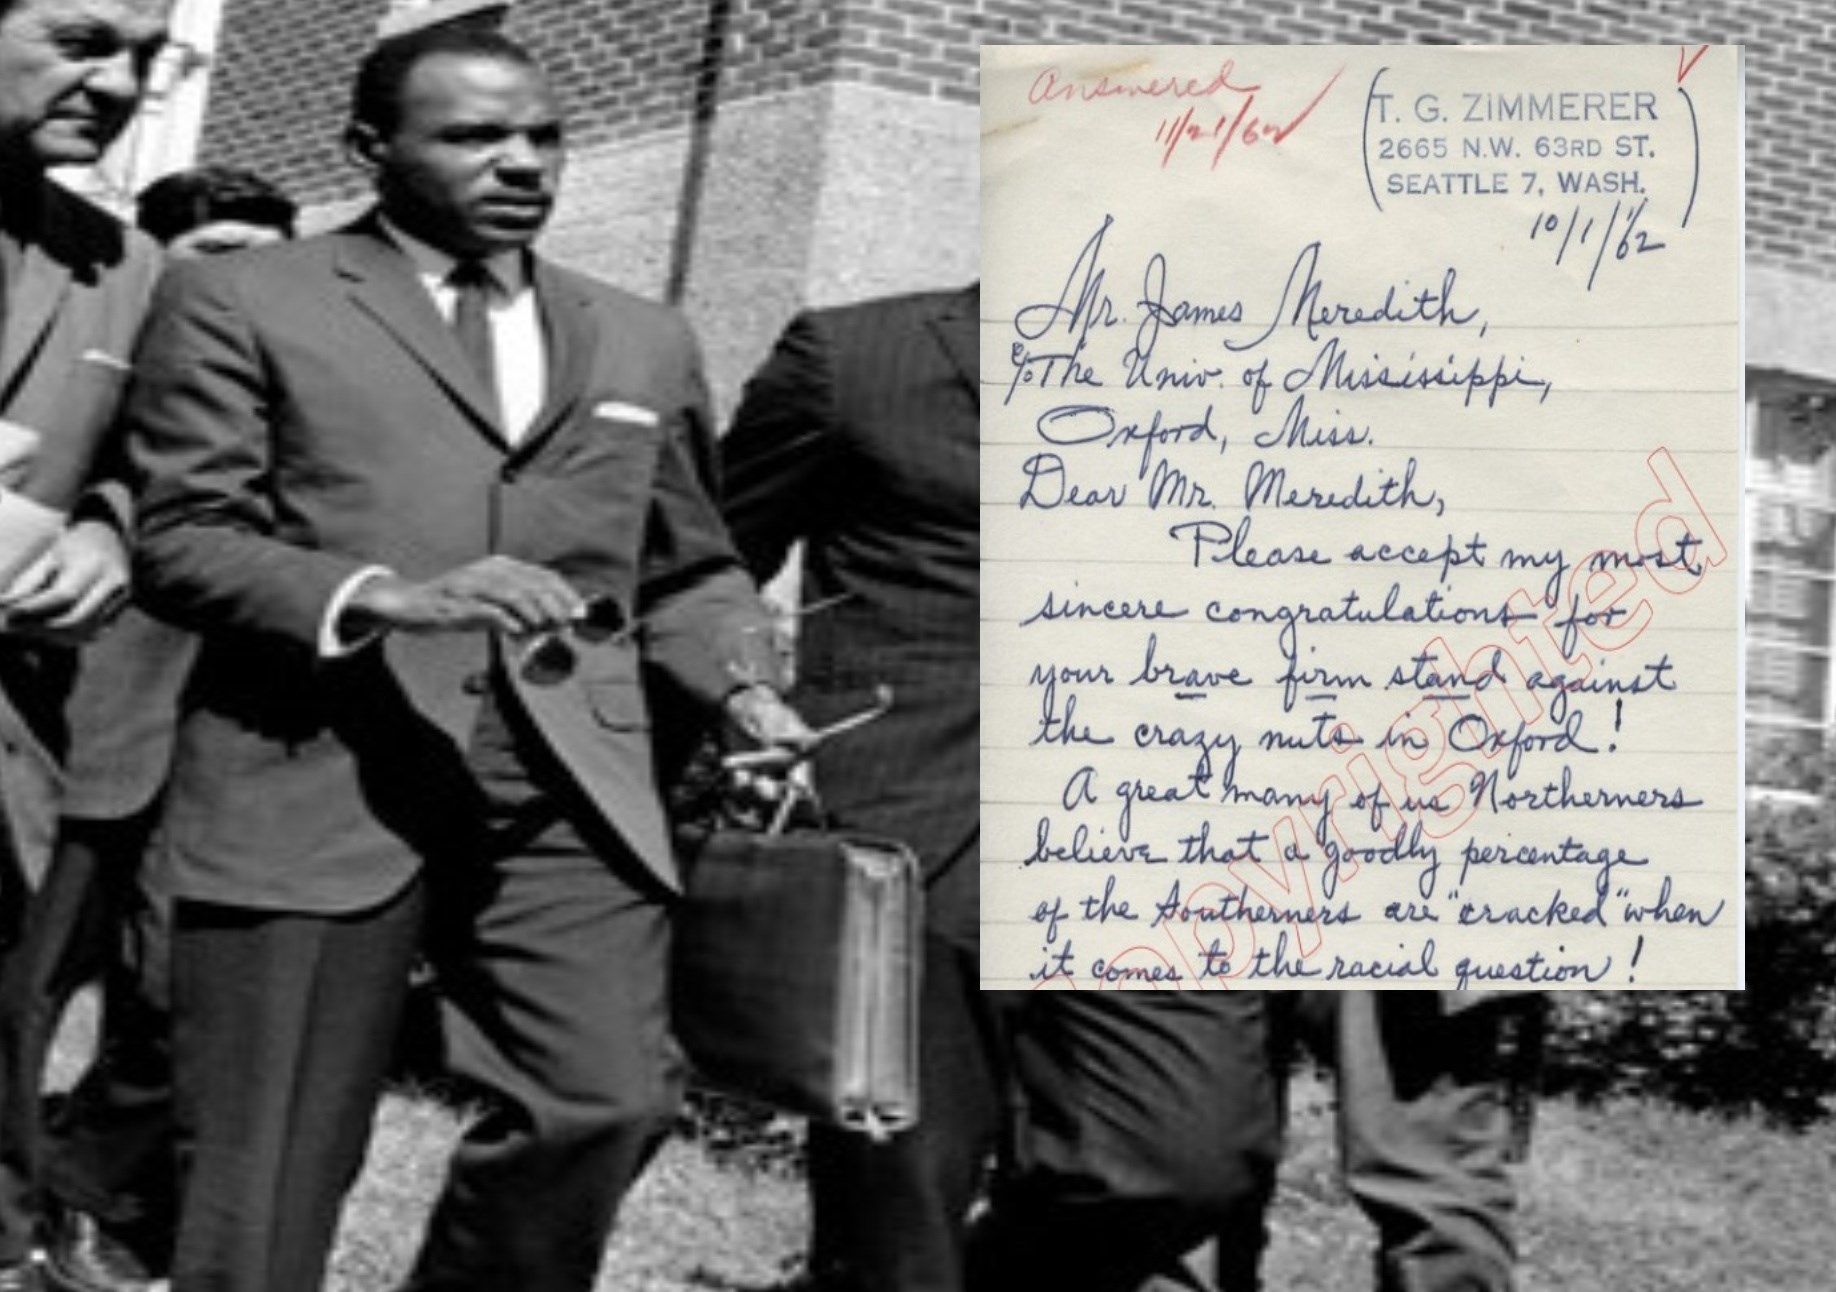 Answered
11/21/62
T. G. ZIMMERER
2665 N.W. 63RD ST.
SEATTLE 7, WASH.
10/1/62
Mr. James Meredith,
c/o The Univ. of Mississippi,
Oxford, Miss.
Dear Mr. Meredith,
Please accept my most
sincere congratulations for
your brave firm stand against
the crazy nuts in Oxford!
A great many of us Northerners
believe that a goodly percentage
of the Southerners are "cracked" when
it comes to the racial question!
copyrighted